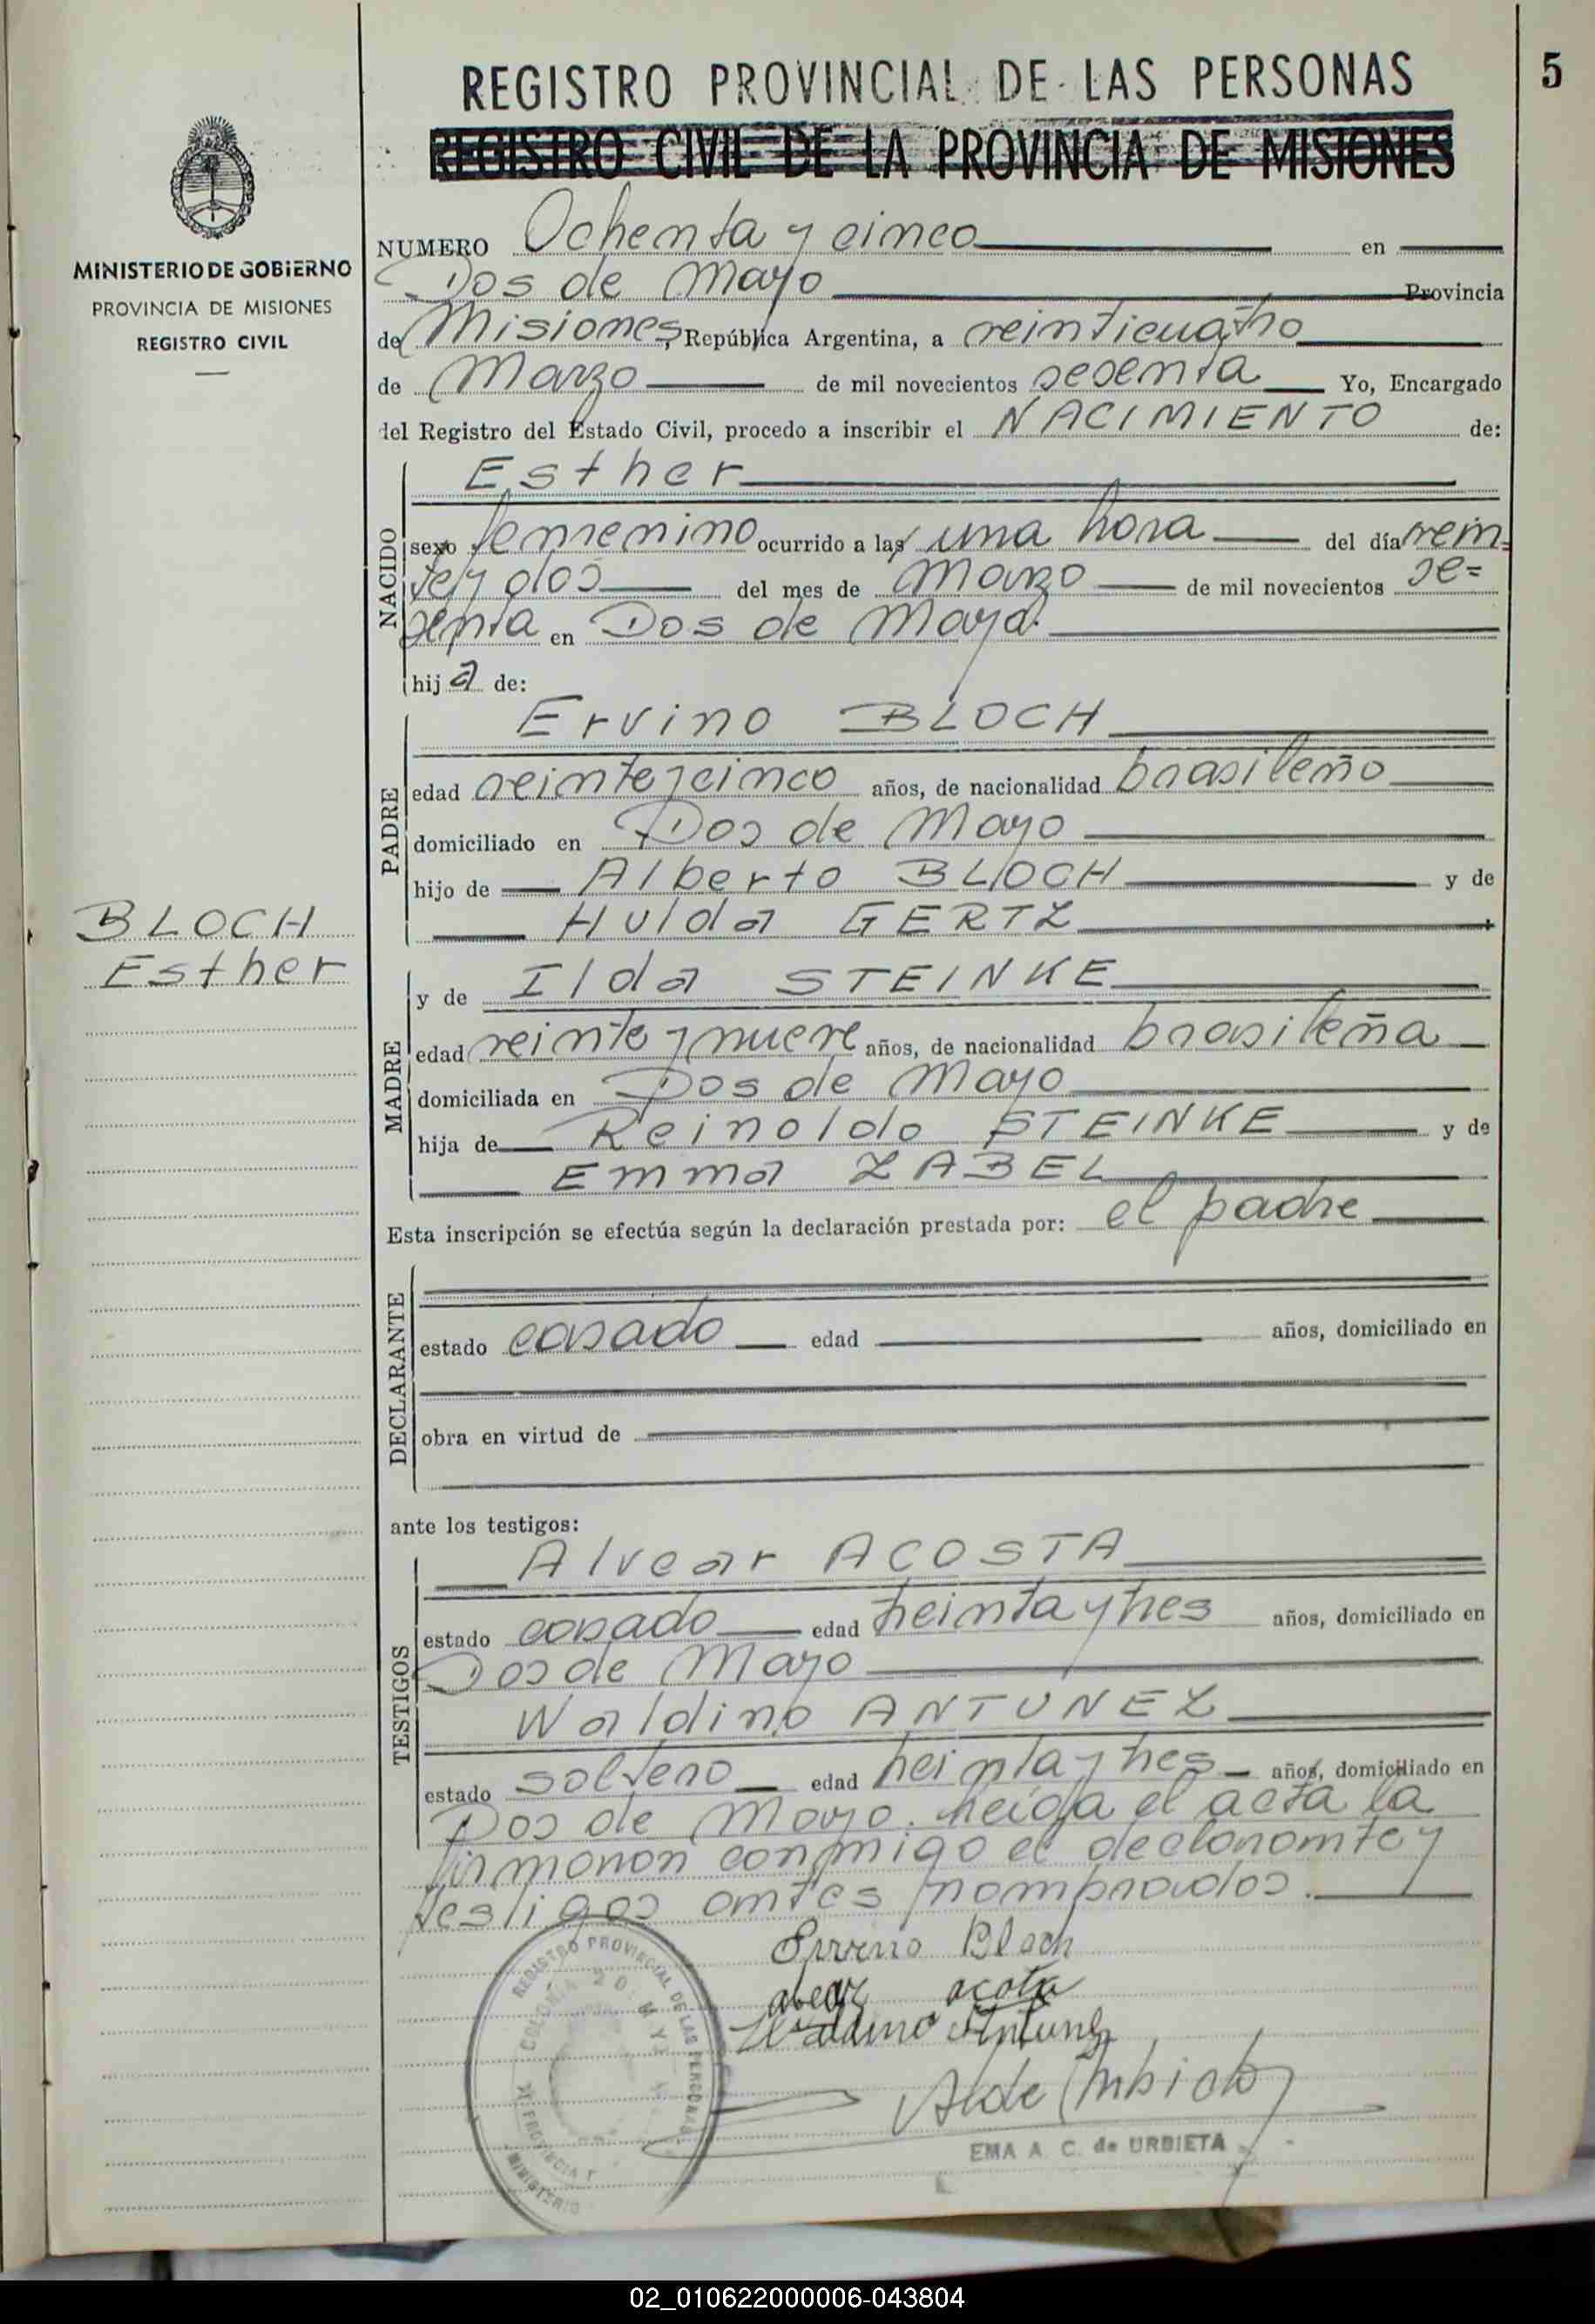 REGISTRO PROVINCIAL DE LAS PERSONAS
5
REGISTRO CIVIL DE LA PROVINCIA DE MISIONES
MINISTERIO DE GOBIERNO
PROVINCIA DE MISIONES
REGISTRO CIVIL
NUMERO Ochenta y cinco en
Dos de Mayo Provincia
de Misiones, República Argentina, a veinticuatro
de Marzo de mil novecientos sesenta Yo, Encargado
del Registro del Estado Civil, procedo a inscribir el NACIMIENTO de:
NACIDO
Esther
sexo femenino ocurrido a las una hora del día vein=
te y dos del mes de Marzo de mil novecientos se=
senta en Dos de Mayo.
hija de:
PADRE
Ervino BLOCH
edad veinte y cinco años, de nacionalidad brasileño
domiciliado en Dos de Mayo
hijo de Alberto BLOCH y de
Hulda GERTZ
BLOCH
Esther
MADRE
y de Ilda STEINKE
edad veinte y nueve años, de nacionalidad brasileña
domiciliada en Dos de Mayo
hija de Reinoldo STEINKE y de
Emma ZABEL
Esta inscripción se efectúa según la declaración prestada por: el padre
DECLARANTE
estado casado edad años, domiciliado en
obra en virtud de
ante los testigos:
TESTIGOS
Alvear ACOSTA
estado casado edad treinta y tres años, domiciliado en
Dos de Mayo
Waldino ANTUNEZ
estado soltero edad treinta y tres años, domiciliado en
Dos de Mayo. Leída el acta la
firmaron conmigo el declarante y
testigos antes nombrados.
Ervino Bloch
alvear acosta
Waldino Antunez
REGISTRO PROVINCIAL DE LAS PERSONAS
COLONIA 2 D. MAYO
MINISTERIO
EMA A. C. de URBIETA
02_010622000006-043804